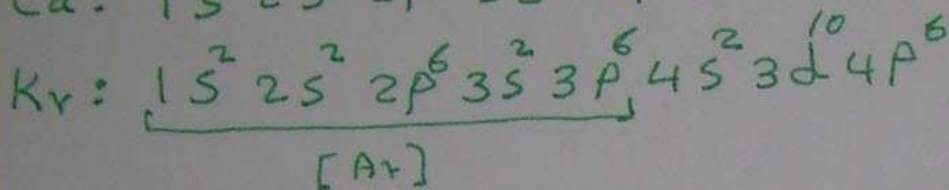 Kr: 1s² 2s² 2p⁶ 3s² 3p⁶ 4s² 3d¹⁰ 4p⁶
[Ar]